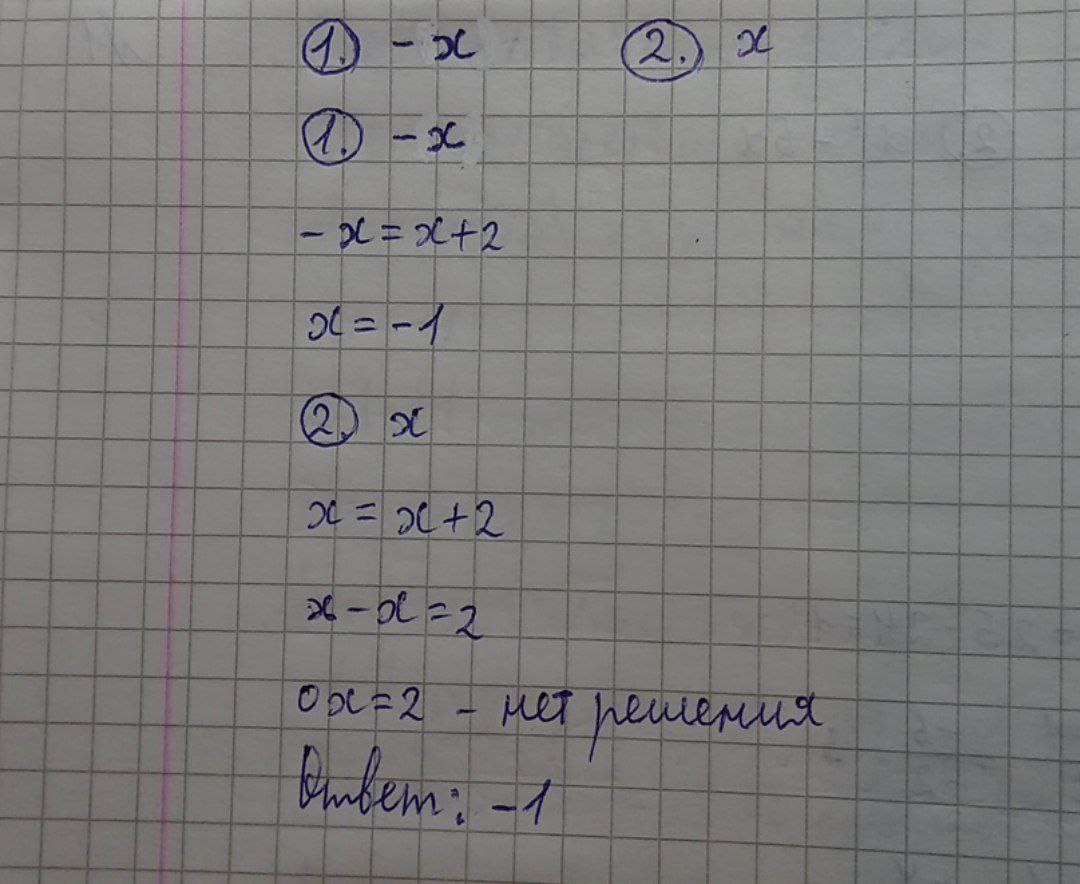 1. -x 2. x
1. -x
-x = x+2
x = -1
2. x
x = x+2
x-x=2
0x=2 - нет решения
Ответ: -1